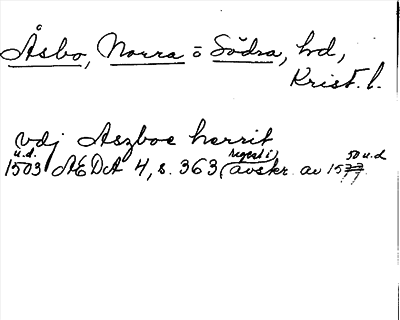 Åsbo, Norra o Södra, hd,
Krist. l.
vdj Aszboe herrit
u.d.
1503 AEDA 4, s. 363 (avskr. av 1577
regest i
50 u.d